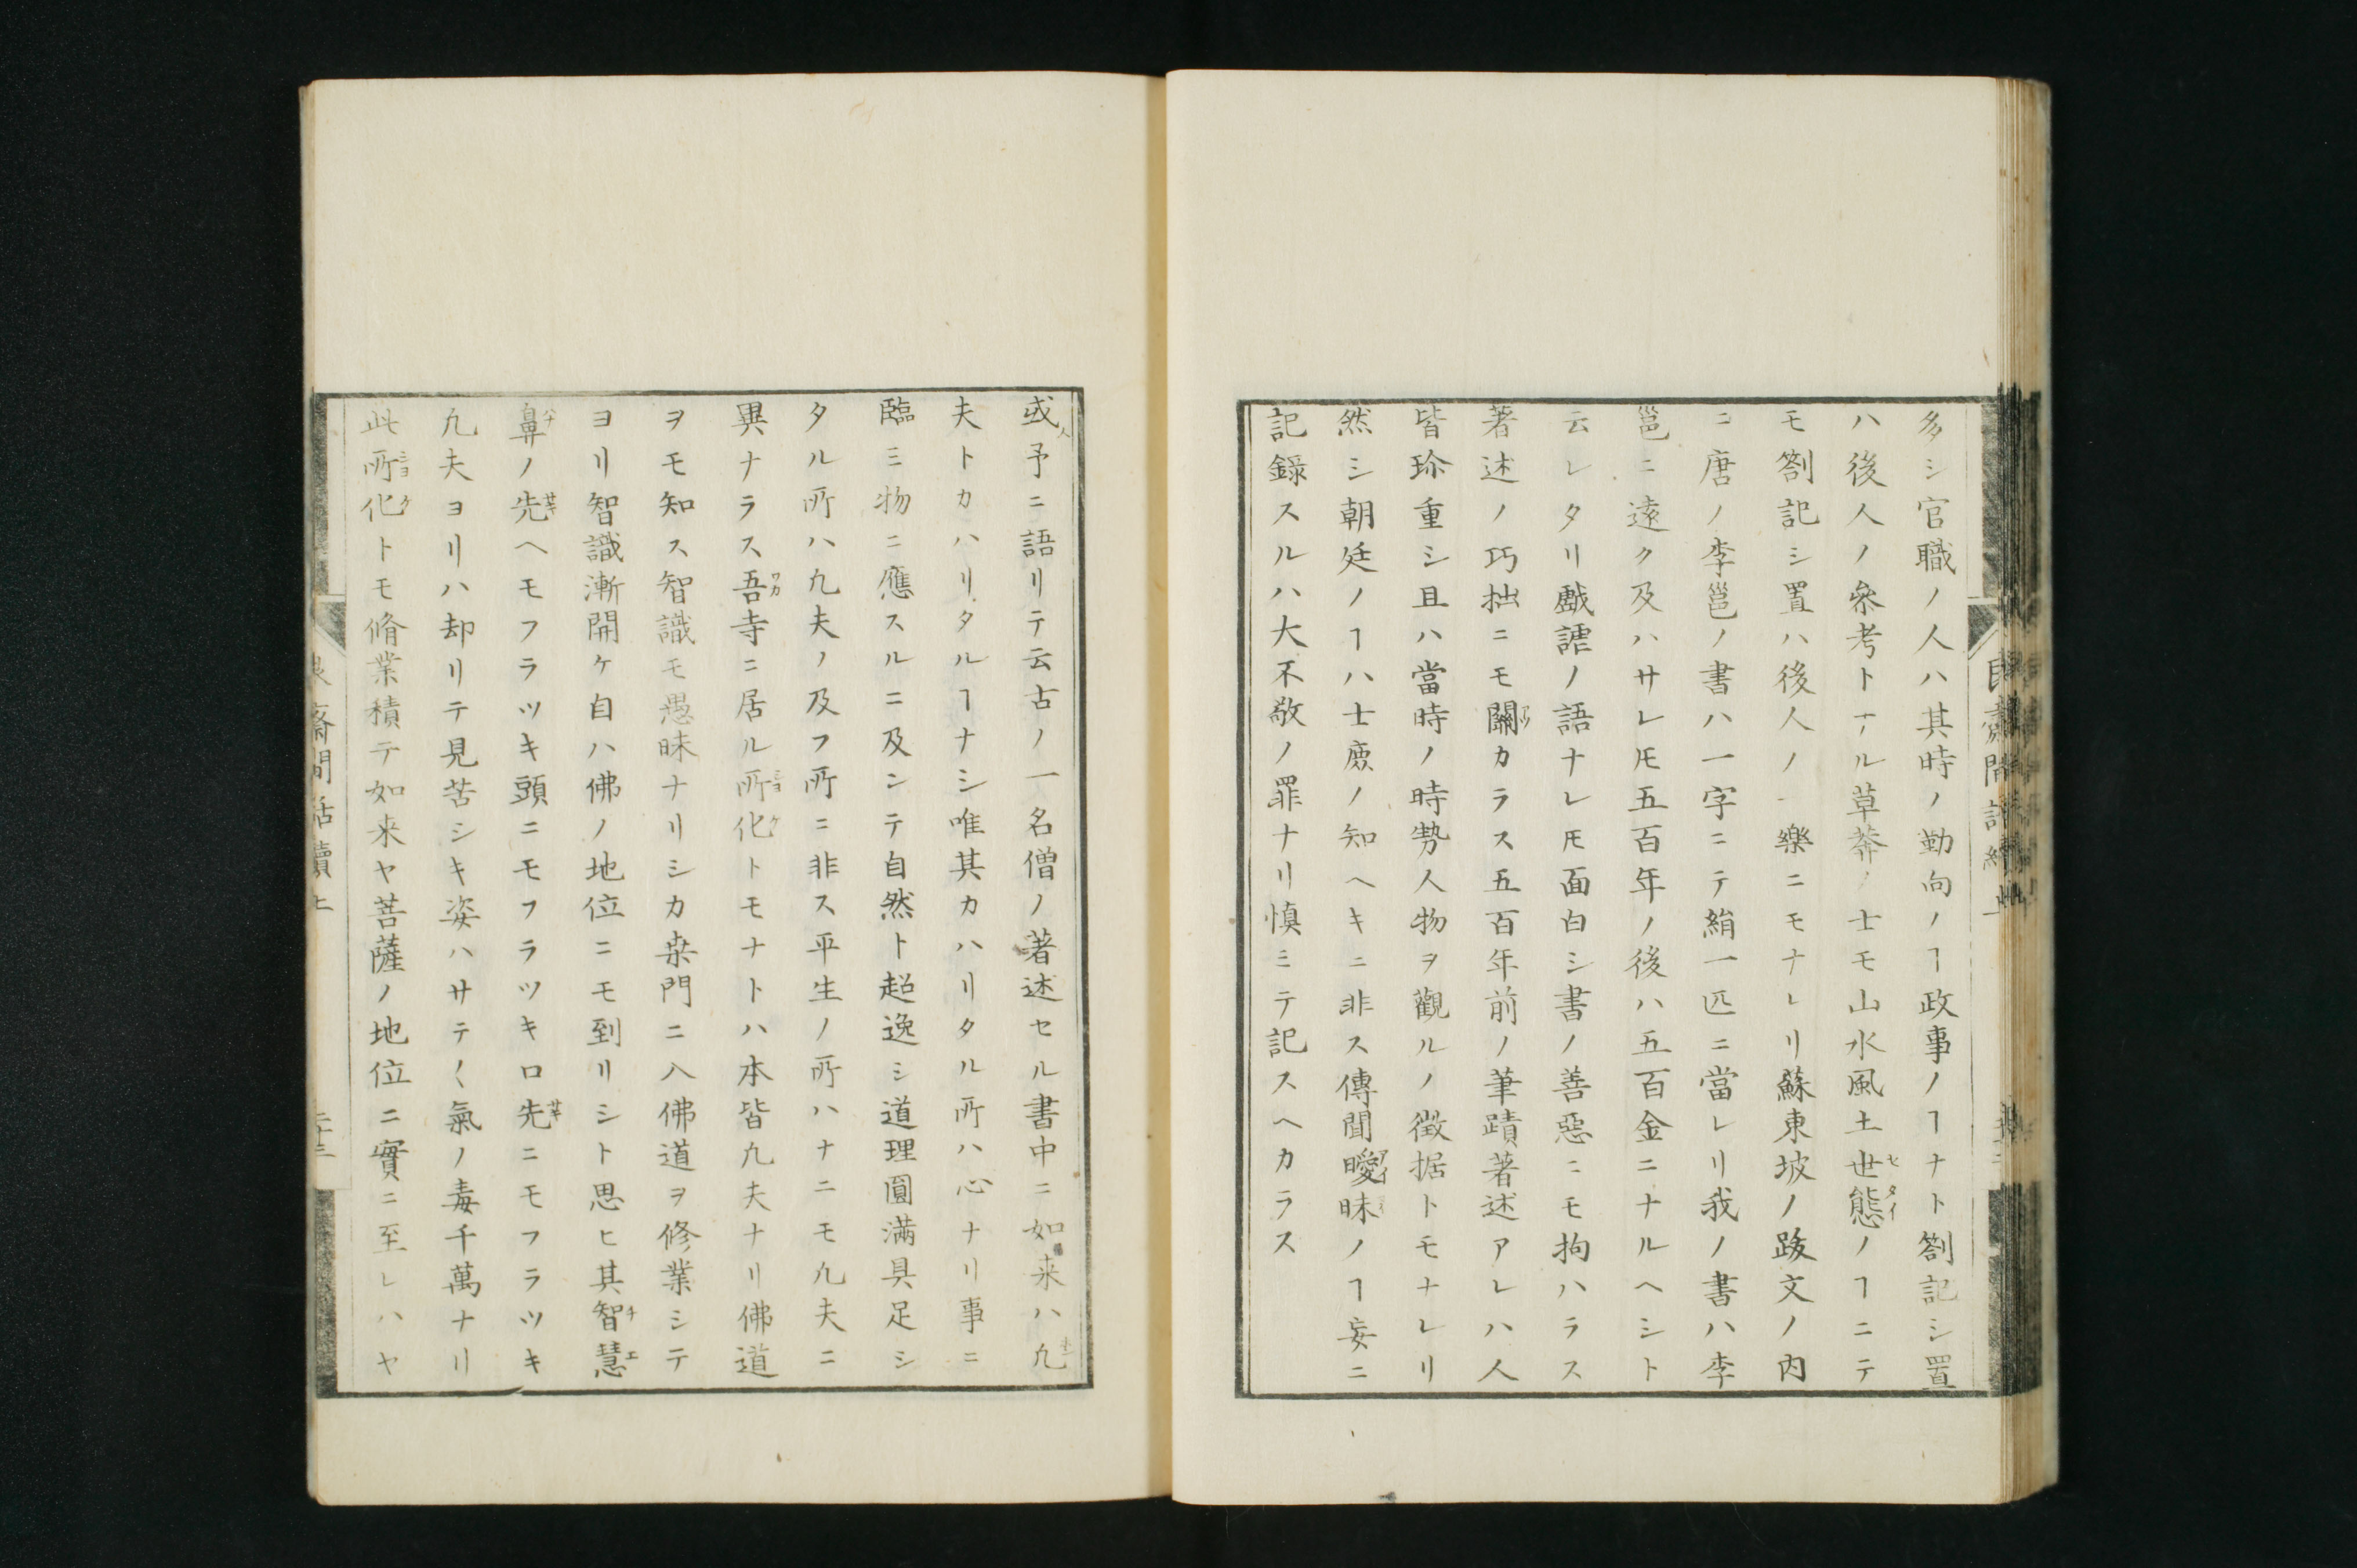 多シ官職ノ人ハ其時ノ勤向ノヿ政事ノヿナト劄記シ置
ハ後人ノ參考トナル草莽ノ士モ山水風土世態ノヿニテ
モ劄記シ置ハ後人ノ一樂ニモナレリ蘇東坡ノ跋文ノ内
ニ唐ノ李邕ノ書ハ一字ニテ絹一匹ニ當レリ我ノ書ハ李
邕ニ遠ク及ハサレ𪜈五百年ノ後ハ五百金ニナルヘシト
云レタリ戯謔ノ語ナレ𪜈面白シ書ノ善惡ニモ拘ハラス
著述ノ巧拙ニモ關カラス五百年前ノ筆蹟著述アレハ人
皆珎重シ且ハ當時ノ時勢人物ヲ觀ルノ徴据トモナレリ
然シ朝廷ノヿハ士庶ノ知ヘキニ非ス傳聞曖昧ノヿ妄ニ
記録スルハ大不敬ノ罪ナリ愼ミテ記スヘカラス
或人予ニ語リテ云古ノ一名僧ノ著述セル書中ニ如来ハ凢
夫トカハリタルヿナシ唯其カハリタル所ハ心ナリ事ニ
臨ミ物ニ應スルニ及ンテ自然ト超逸シ道理圓満具足シ
タル所ハ凢夫ノ及フ所ニ非ス平生ノ所ハナニモ凢夫ニ
異ナラス吾寺ニ居ル所化トモナトハ本皆凢夫ナリ佛道
ヲモ知ス智識モ愚昧ナリシカ桒門ニ入佛道ヲ修業シテ
ヨリ智識漸開ケ自ハ佛ノ地位ニモ到リシト思ヒ其智慧
鼻ノ先ヘモフラツキ頭ニモフラツキ口先ニモフラツキ
凢夫ヨリハ却リテ見苦シキ姿ハサテ〱氣ノ毒千萬ナリ
此所化トモ脩業積テ如来ヤ菩薩ノ地位ニ實ニ至レハヤ
艮齋閒話續上